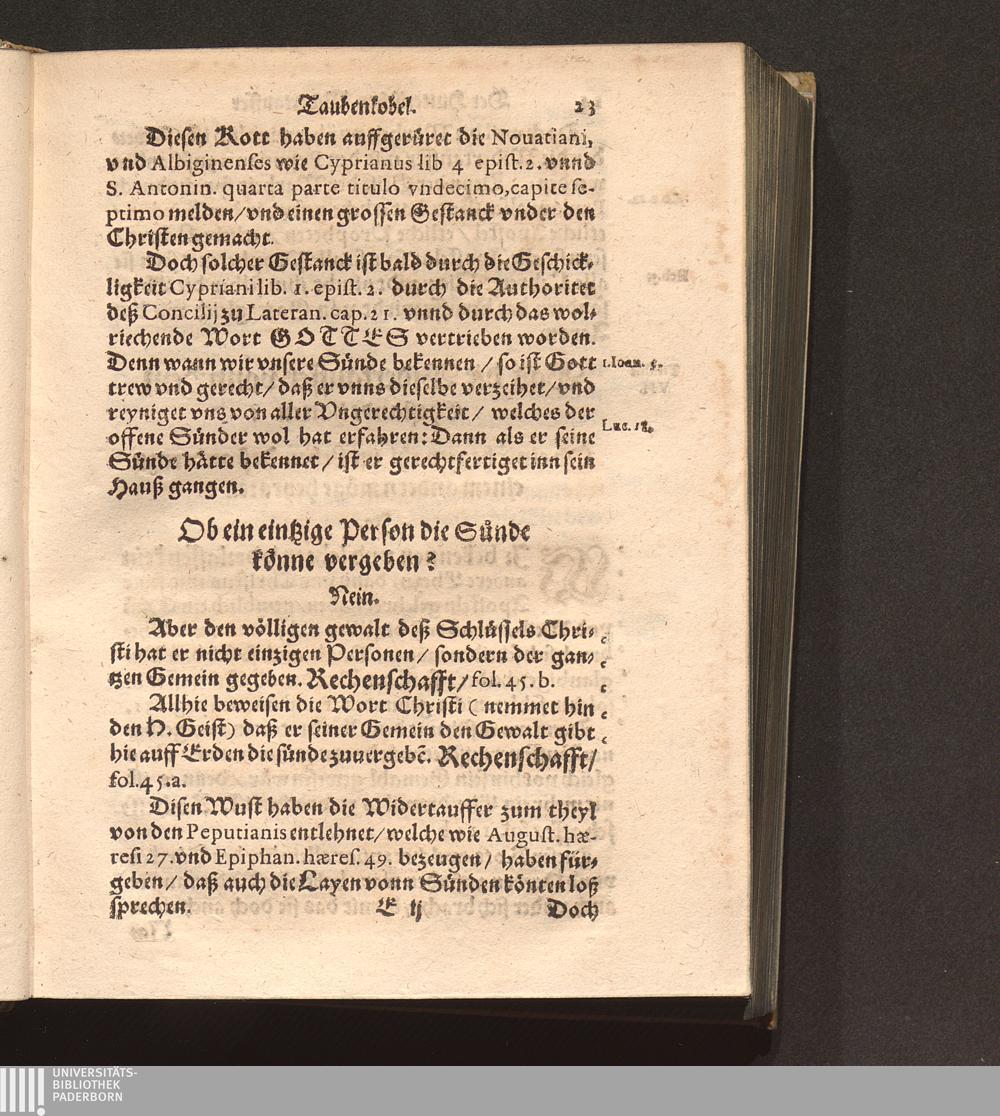 Taubenkobel. 23
Diesen Kott haben auffgerüret die Nouatiani,
vnd Albiginenses wie Cyprianus lib 4 epist. 2. vnnd
S. Antonin. quarta parte titulo vndecimo, capite se-
ptimo melden/ vnd einen grossen Gestanck vnder den
Christen gemacht.
Doch solcher Gestanck ist bald durch die Geschick-
ligkeit Cypriani lib. 1. epist. 2. durch die Authoritet
deß Concilij zu Lateran. cap. 21. vnnd durch das wol-
riechende Wort GOTTES vertrieben worden.
Denn wann wir vnsere Sünde bekennen / so ist Gott 1. Ioan. 5.
trew vnd gerecht/ daß er vnns dieselbe verzeihet/ vnd
reyniget vns von aller Vngerechtigkeit/ welches der
offene Sünder wol hat erfahren: Dann als er seine Luc. 18.
Sünde hätte bekennet / ist er gerechtfertiget inn sein
Hauß gangen.
Ob ein eintzige Person die Sünde
könne vergeben?
Nein.
Aber den völligen gewalt deß Schlüssels Chri-
sti hat er nicht einzigen Personen/ sondern der gan-
tzen Gemein gegeben. Rechenschafft/ fol. 45. b.
Allhie beweisen die Wort Christi ( nemmet hin
den H. Geist) daß er seiner Gemein den Gewalt gibt
hie auff Erden die sünde zuuergebẽ. Rechenschafft/
fol. 45. a.
Disen Wust haben die Widertauffer zum theyl
von den Peputianis entlehnet/ welche wie August. hæ-
resi 27. vnd Epiphan. hæres. 49. bezeugen / haben für-
geben / daß auch die Layen vonn Sünden könten loß
sprechen. E ij Doch
UNIVERSITÄTS-
BIBLIOTHEK
PADERBORN